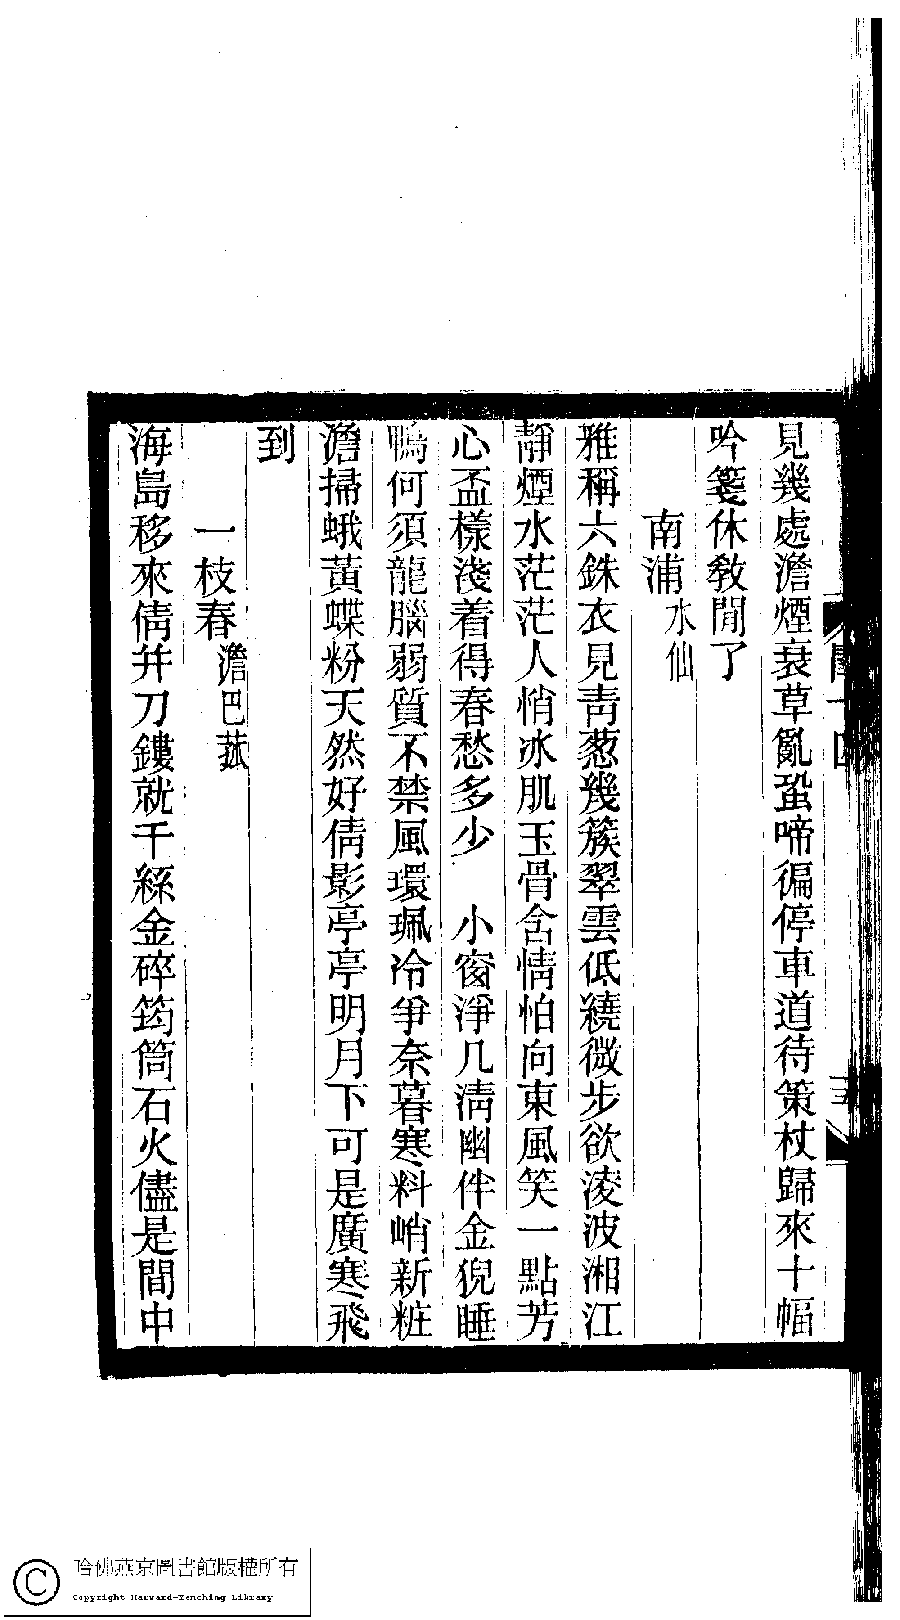 見幾處澹煙衰草亂蛩啼徧停車道待策杖歸來十幅
吟箋休敎閒了
南浦水仙
雅稱六銖衣見靑葱幾簇翠雲低繞微步欲淩波湘江
靜煙水茫茫人悄冰肌玉骨含情怕向東風笑一點芳
心盃樣淺着得春愁多少 小窗淨几淸幽伴金猊睡
鴨何須龍腦弱質不禁風環珮冷爭奈暮寒料峭新粧
澹掃蛾黃蝶粉天然好倩影亭亭明月下可是廣寒飛
到
一枝春澹巴菰
海島移來倩幷刀鏤就千絲金碎筠筒石火儘是間中
哈佛燕京圖書館版權所有
Copyright Harvard-Yenching Library